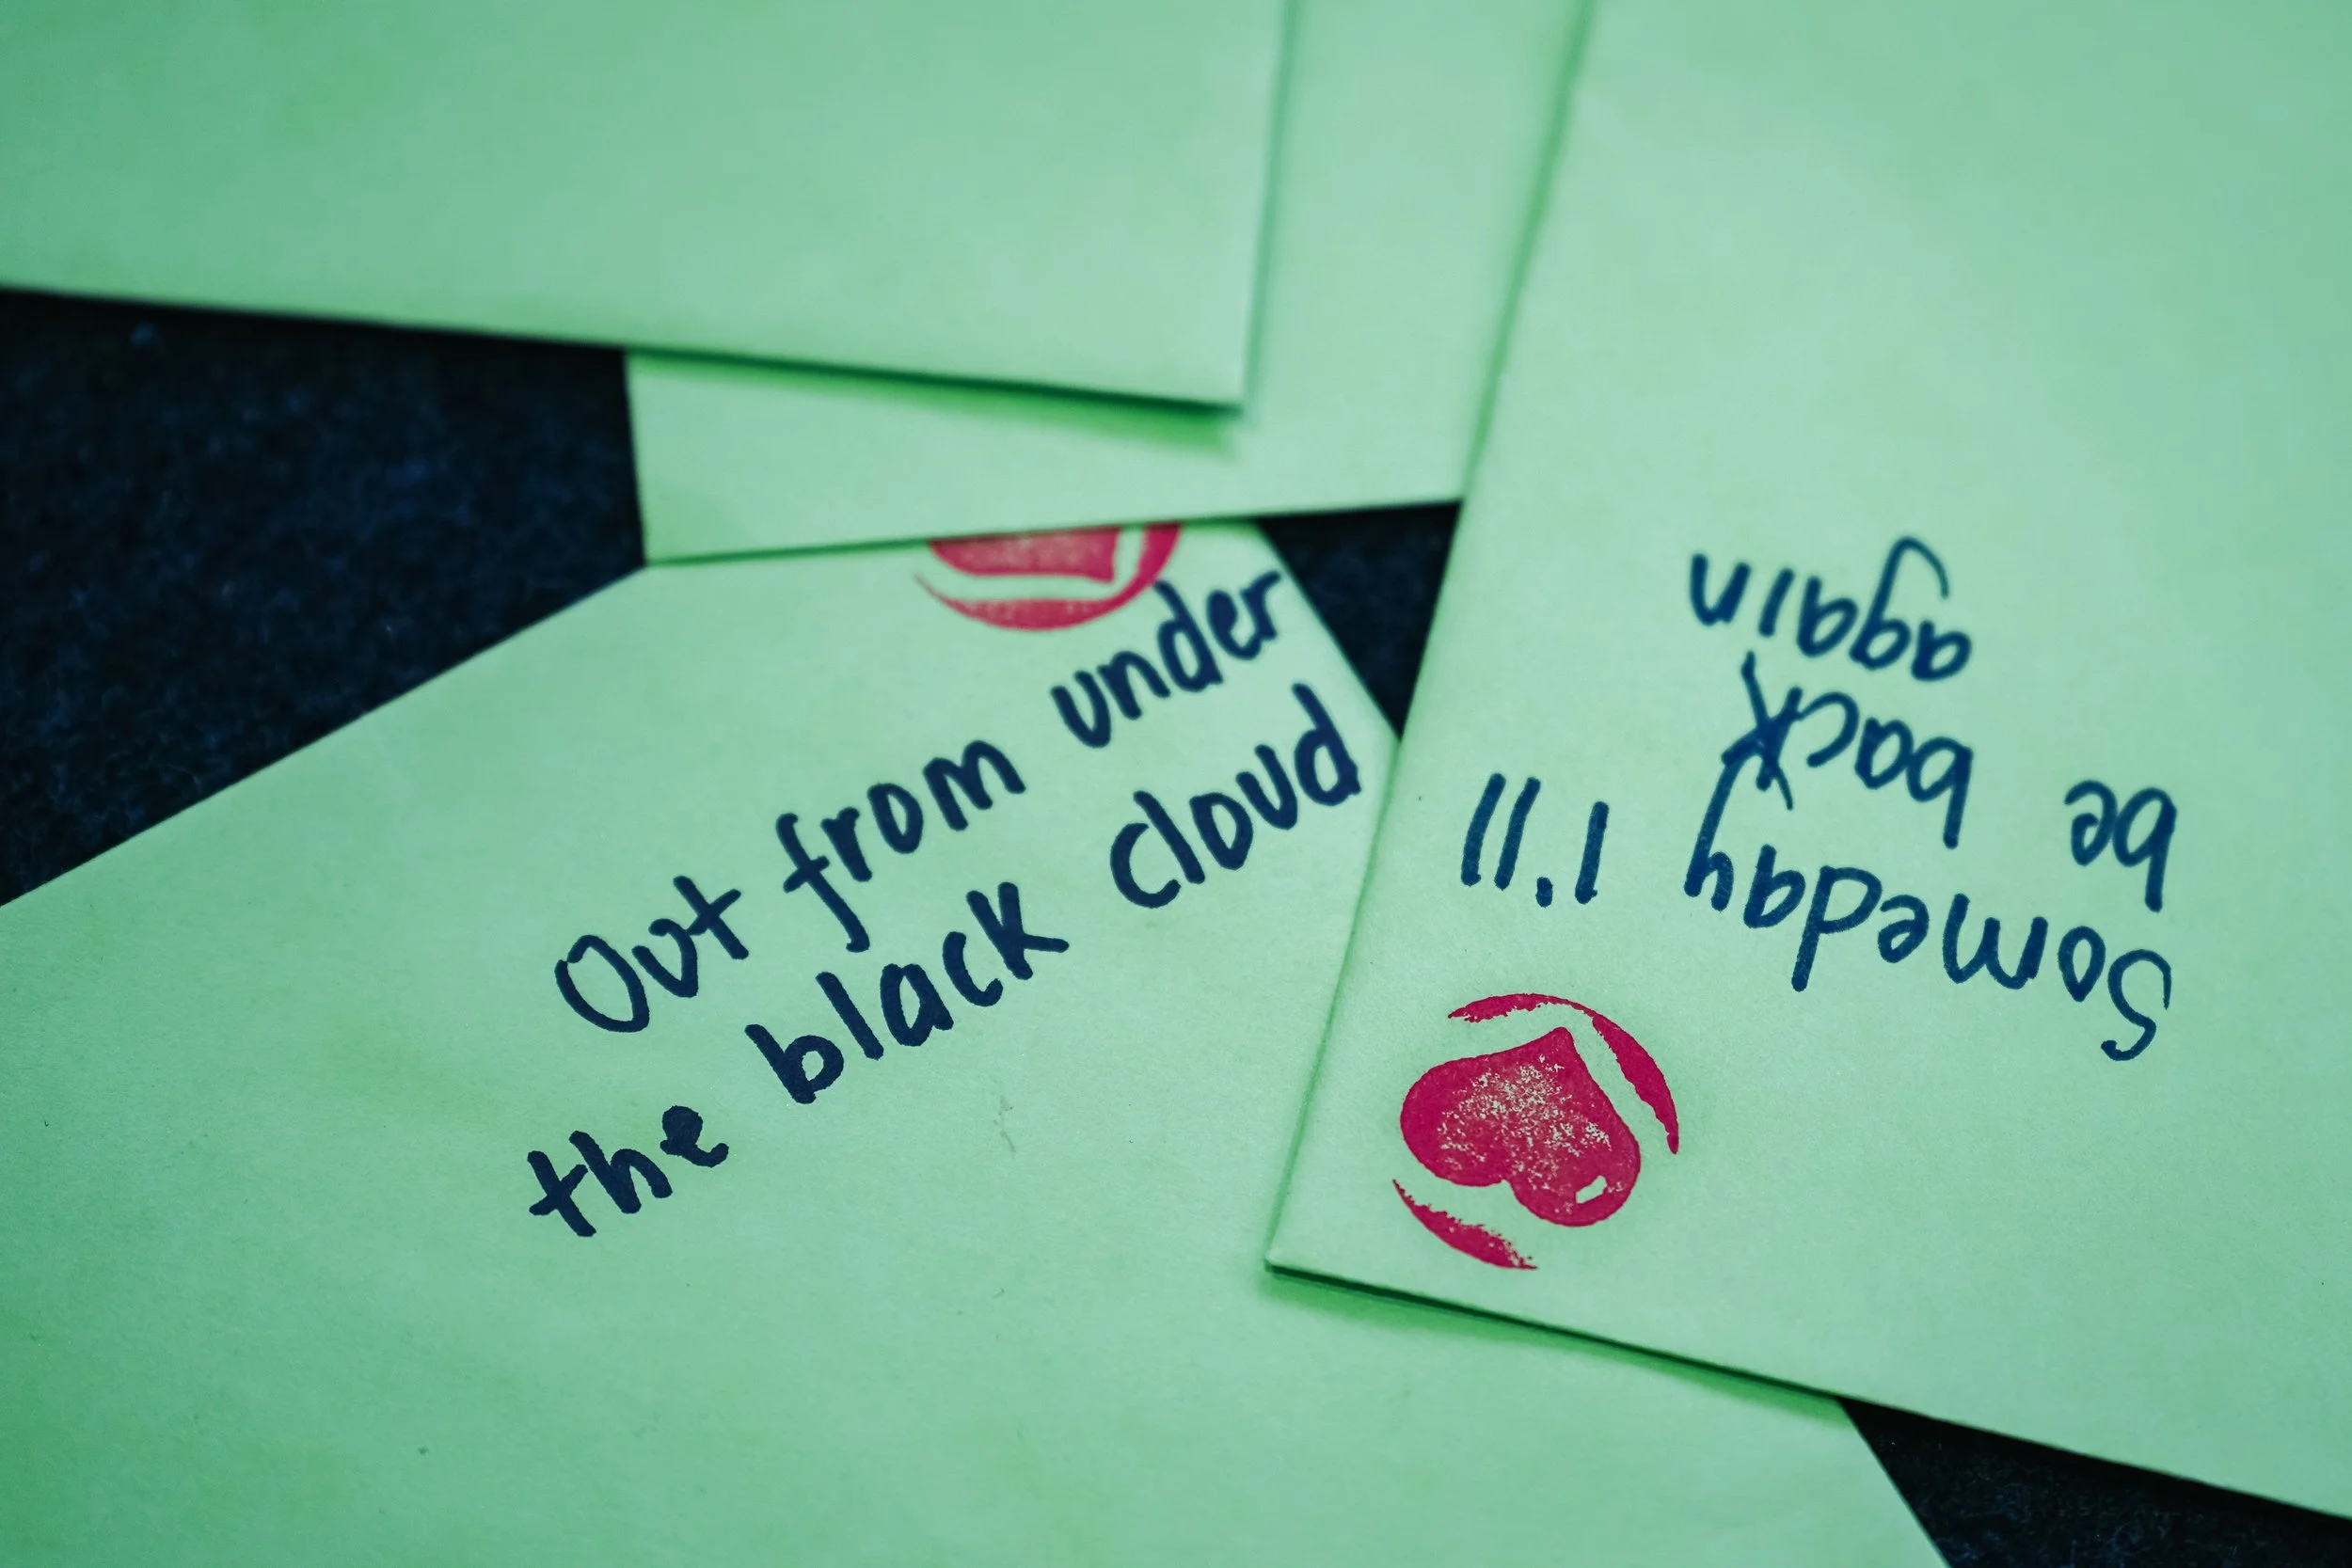 Out from under
the black cloud
Someday I'll
be back
again